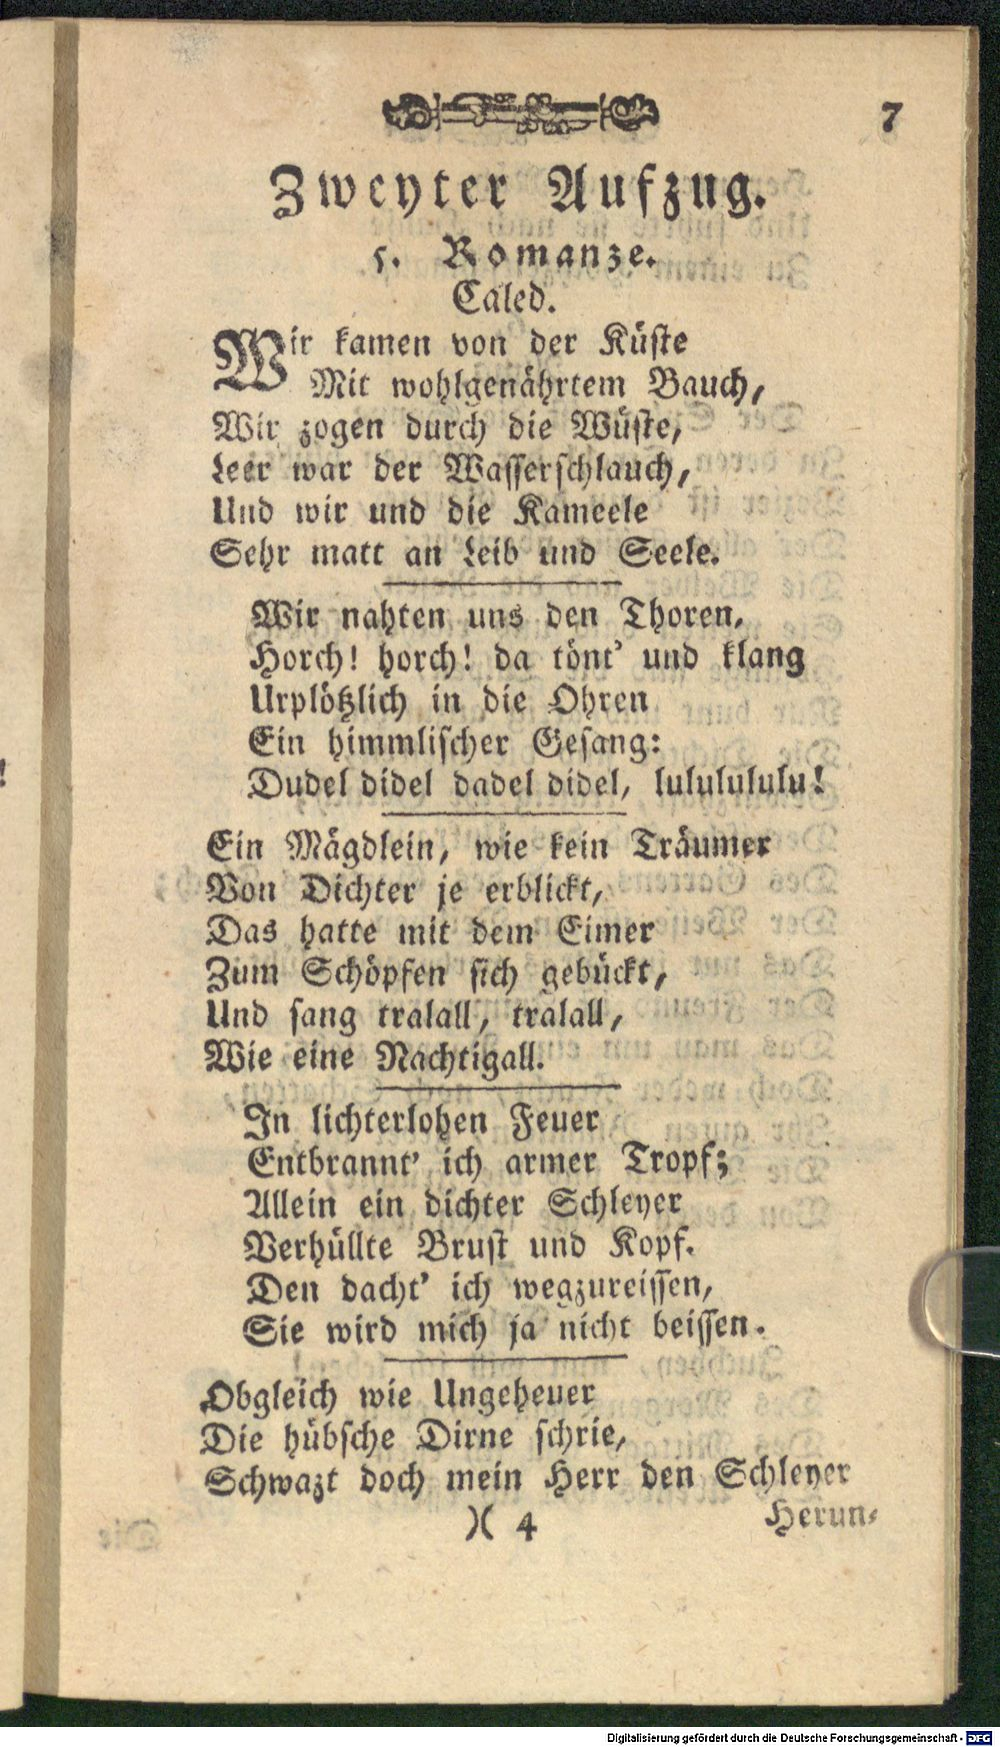 7
Zweyter Aufzug.
5. Romanze.
Caled.
Wir kamen von der Küste
Mit wohlgenährtem Bauch,
Wir zogen durch die Wüste,
Leer war der Wasserschlauch,
Und wir und die Kameele
Sehr matt an Leib und Seele.
Wir nahten uns den Thoren,
Horch! horch! da tönt' und klang
Urplötzlich in die Ohren
Ein himmlischer Gesang:
Dudel didel dadel didel, lulululu!
Ein Mägdlein, wie kein Träumer
Von Dichter je erblickt,
Das hatte mit dem Eimer
Zum Schöpfen sich gebückt,
Und sang tralall, tralall,
Wie eine Nachtigall.
In lichterlohen Feuer
Entbrannt' ich armer Tropf;
Allein ein dichter Schleyer
Verhüllte Brust und Kopf.
Den dacht' ich wegzureissen,
Sie wird mich ja nicht beissen.
Obgleich wie Ungeheuer
Die hübsche Dirne schrie,
Schwazt doch mein Herr den Schleyer
)( 4 Herun-
Digitalisierung gefördert durch die Deutsche Forschungsgemeinschaft - DFG